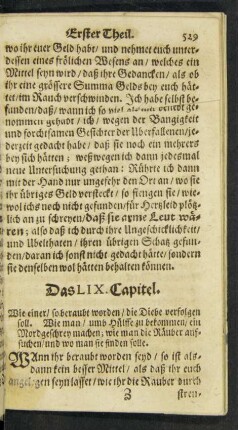 Erster Theil. 529
wo ihr euer Geld habt / und nehmet euch unter-
dessen eines frölichen Wesens an / welches ein
Mittel seyn wird / daß ihre Gedancken / als ob
ihr eine grössere Summa Gelds bey euch hät-
tet / im Rauch verschwinden. Ich habe selbst be-
funden / daß / wann ich so viel als mir beliebt ge-
nommen gehabt / ich / wegen der Bangigkeit
und forchtsamen Gesichter der Uberfallenen / je-
derzeit gedacht habe / daß sie noch ein mehrers
bey sich hätten ; weßwegen ich dann jedesmal
neue Untersuchung gethan : Rührte ich dann
mit der Hand nur ungefehr den Ort an / wo sie
ihr übriges Geld versteckt / so fiengen sie / wie-
wol ichs noch nicht gefunden / für Hertzleid plötz-
lich an zu schreyen / daß sie arme Leut wä-
ren ; also daß ich durch ihre Ungeschicklichkeit /
und Ubelthaten / ihren übrigen Schatz gefun-
den / daran ich sonst nicht gedacht hätte / sondern
sie denselben wol hätten behalten können.
Das LIX. Capitel.
Wie einer / so beraubt worden / die Diebe verfolgen
soll. Wie man / umb Hülffe zu bekommen / ein
Mordgeschrey machen ; wie man die Räuber auf-
suchen / und wo man sie finden solle.
Wann ihr beraubt worden seyd / so ist als-
dann kein besser Mittel / als daß ihr euch
angelegen seyn lasset / wie ihr die Räuber durch
Z stren-